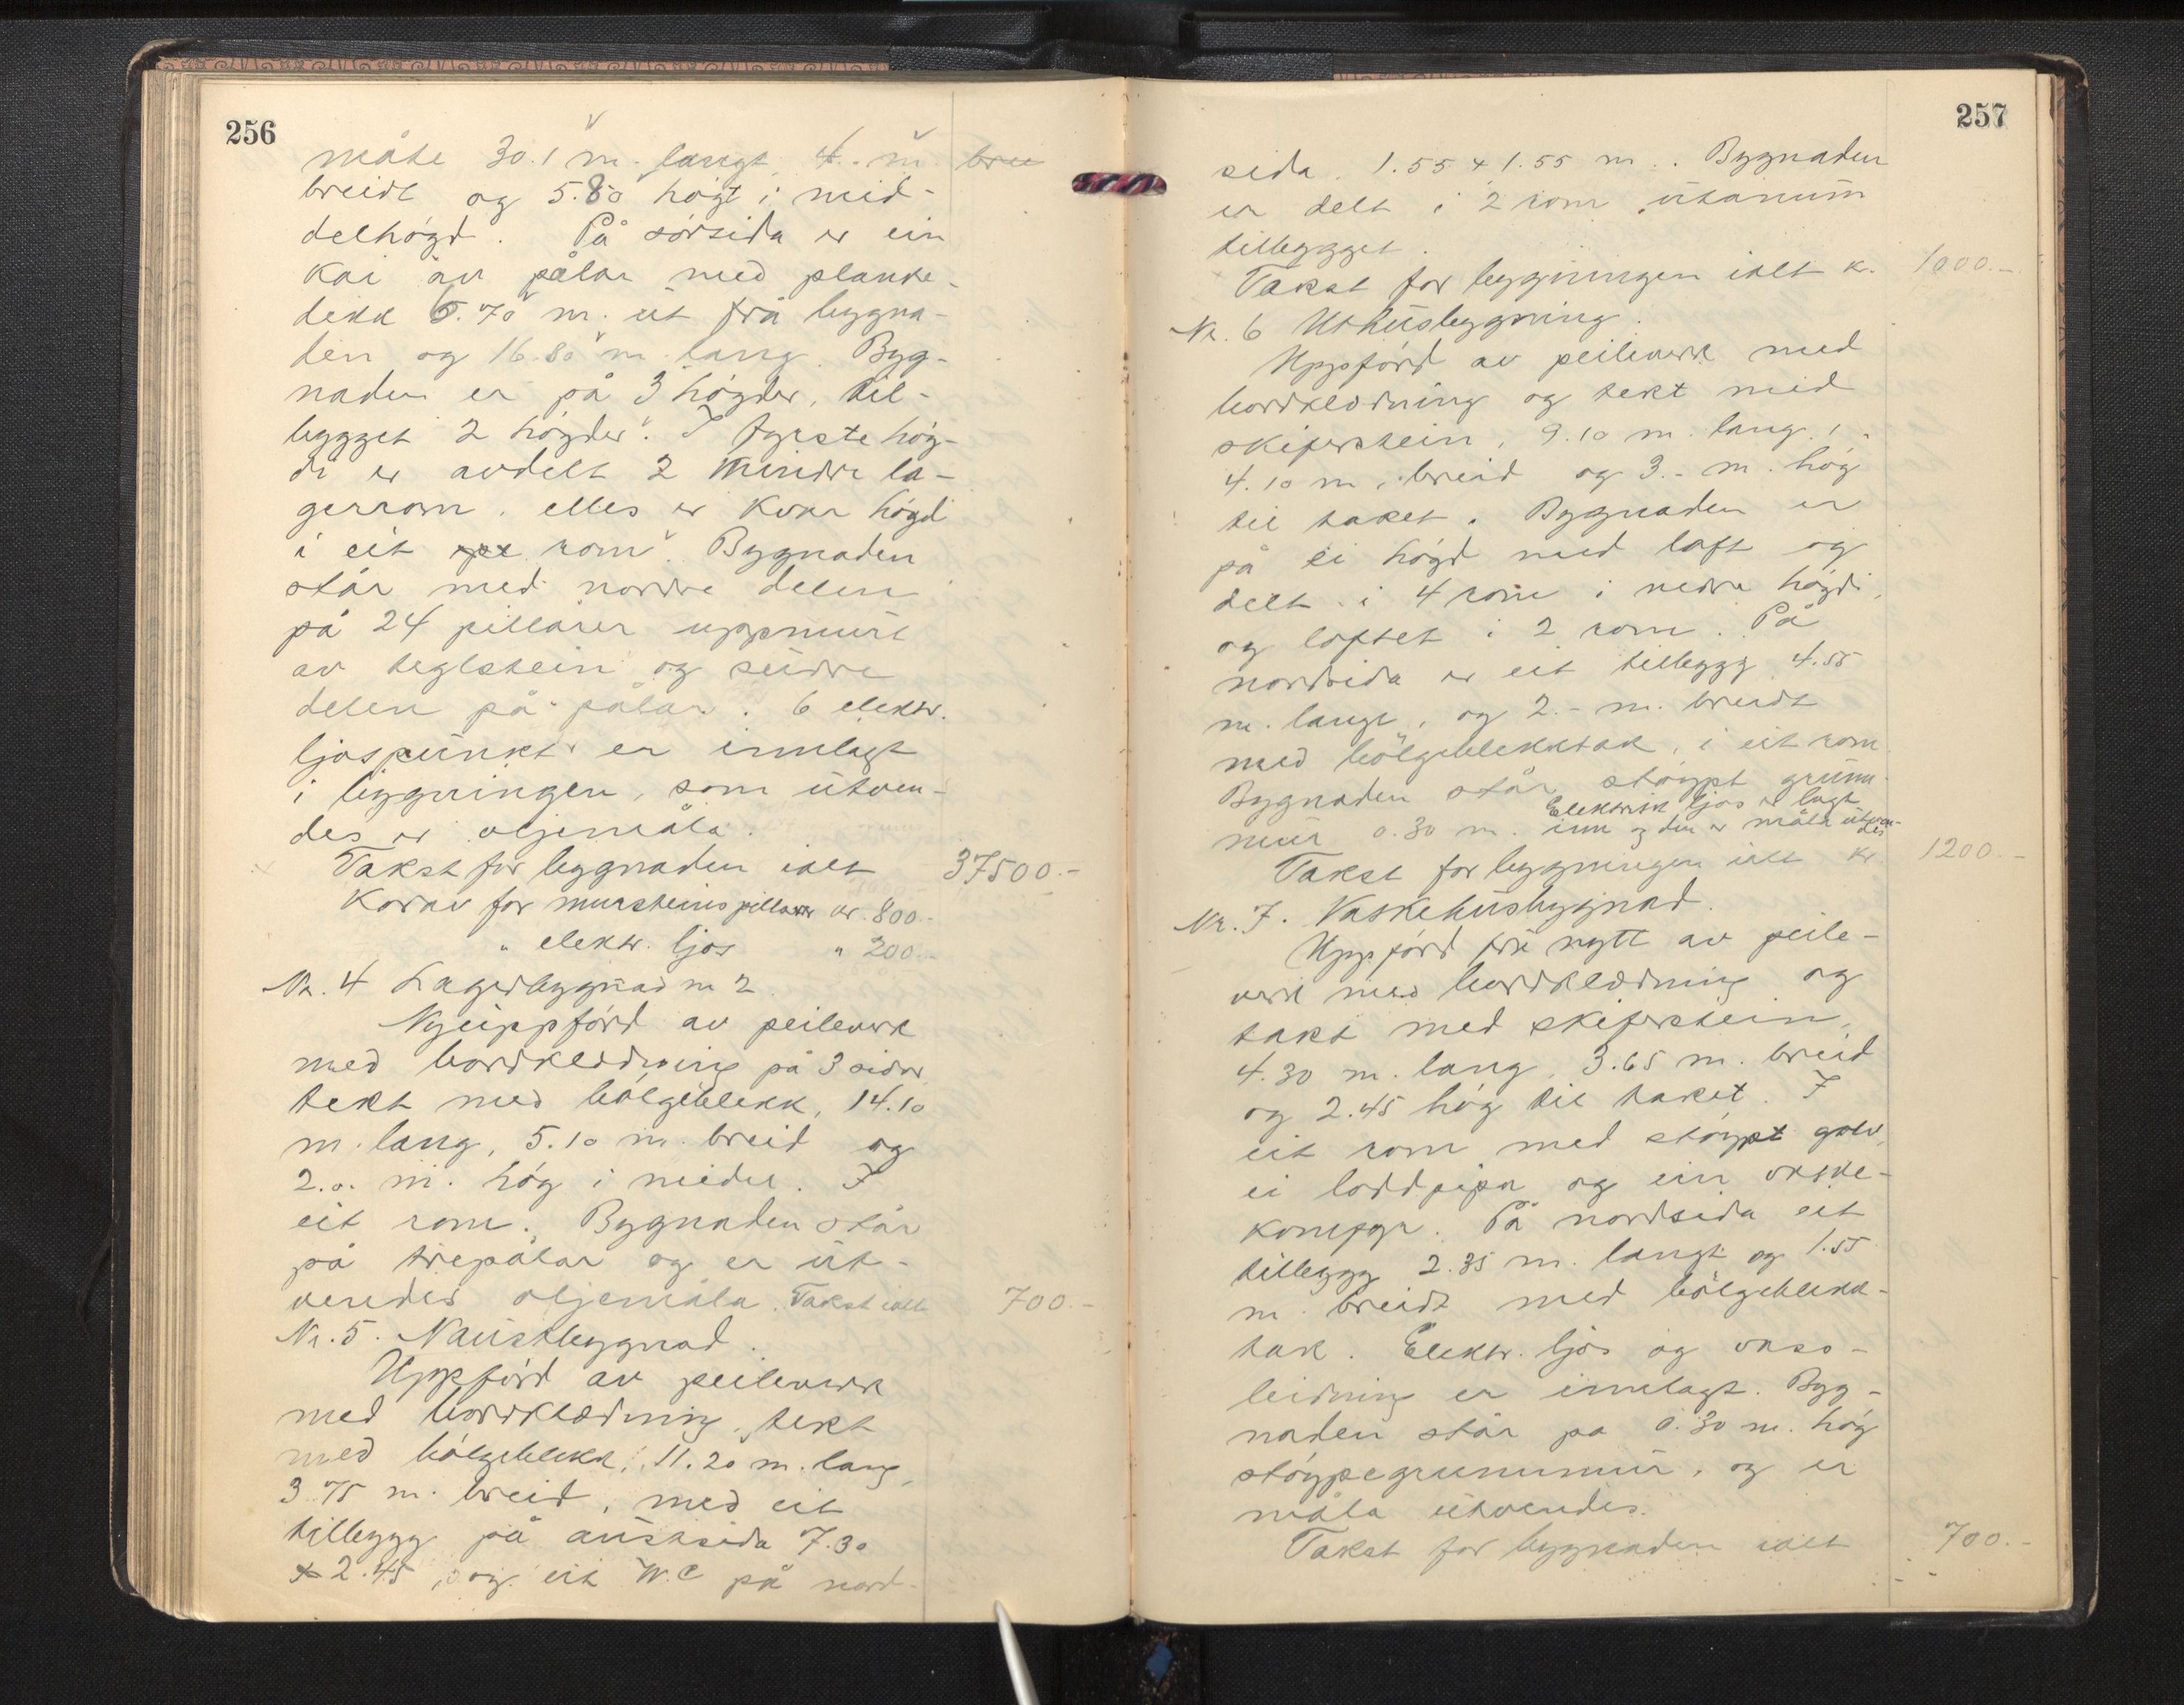 256
måte 30.1 m. langt, 4.- m. bree
breidt og 5.80 høgt i mid-
delhøgd. På sørsida er ein
kai av pålar med planke-
dekk 6.70 m. ut frå bygna-
den og 16.80 m. lang. Byg-
naden er på 3 høgder, til-
bygget 2 høgder. I fyrste høg-
di er avdelt 2 mindre la-
gerrom, elles er kvar høgd
i eit rom. Bygnaden
står med nordre delen
på 24 pillarer uppmurt
av teglstein og sudre
delen på pålar. 6 elektr.
ljospunkt er innlagt
i bygningen, som utven-
des er oljemåla.
Takst for bygnaden ialt 37500.-
Korav for mursteins pillarer kr. 800.-
" elektr. ljos " 200.-
Nr. 4 Lagerbygnad nr 2.
Nyuppførd av peileverk
med bordklædning på 3 sidor,
tekt med bølgeblekk, 14.10
m. lang, 5.10 m. breid og
2.0. m. høg i middel. I
eit rom. Bygnaden står
på trepålar og er ut-
vendes oljemåla. Takst ialt 700.-
Nr. 5. Naustbygnad.
Uppførd av peileverk
med bordklædning, tekt
med bølgeblekk, 11.20 m. lang,
3.75 m. breid, med eit
tillbygg på austsida 7.30
x 2.45, og eit W.C på nord-
257
sida. 1.55 x 1.55 m. Bygnaden
er delt i 2 rom utanum
tilbygget.
Takst for bygningen ialt kr. 1000.-
Nr. 6 Uthusbygning.
Uppførd av peileverk med
bordklædning og tekt med
skiferstein, 9.10 m. lang,
4.10 m. breid og 3.- m. høg
til taket. Bygnaden er
på ei høgd med loft og
delt i 4 rom i nedre høgdi,
og loftet i 2 rom. På
nordsida er eit tillbygg 4.55
m. langt, og 2.- m. breidt
med bølgeblekktak, i eit rom
Bygnaden står støypt grunn-
Elektrisk ljos er lagt
mur 0.30 m. inn og den er måla utven-
des
Takst for bygningen ialt kr 1200.-
Nr. 7. Vaskehusbygnad.
Uppførd frå nytt av peile-
verk med bordklædning og
takt med skiferstein,
4.30 m. lang, 3.65 m. breid
og 2.45 høg til taket. I
eit rom med støypt golv,
ei loddpipa og ein vaske-
komfyr. På nordsida eit
tillbygg 2.35 m. langt og 1.55
m. breidt med bølgeblekk-
tak. Elektr. ljos og vass-
leidning er innlagt. Byg-
naden står på 0.30 m. høg
støypegrunnmur, og er
måla utvendes.
Takst for bygnaden ialt 700.-